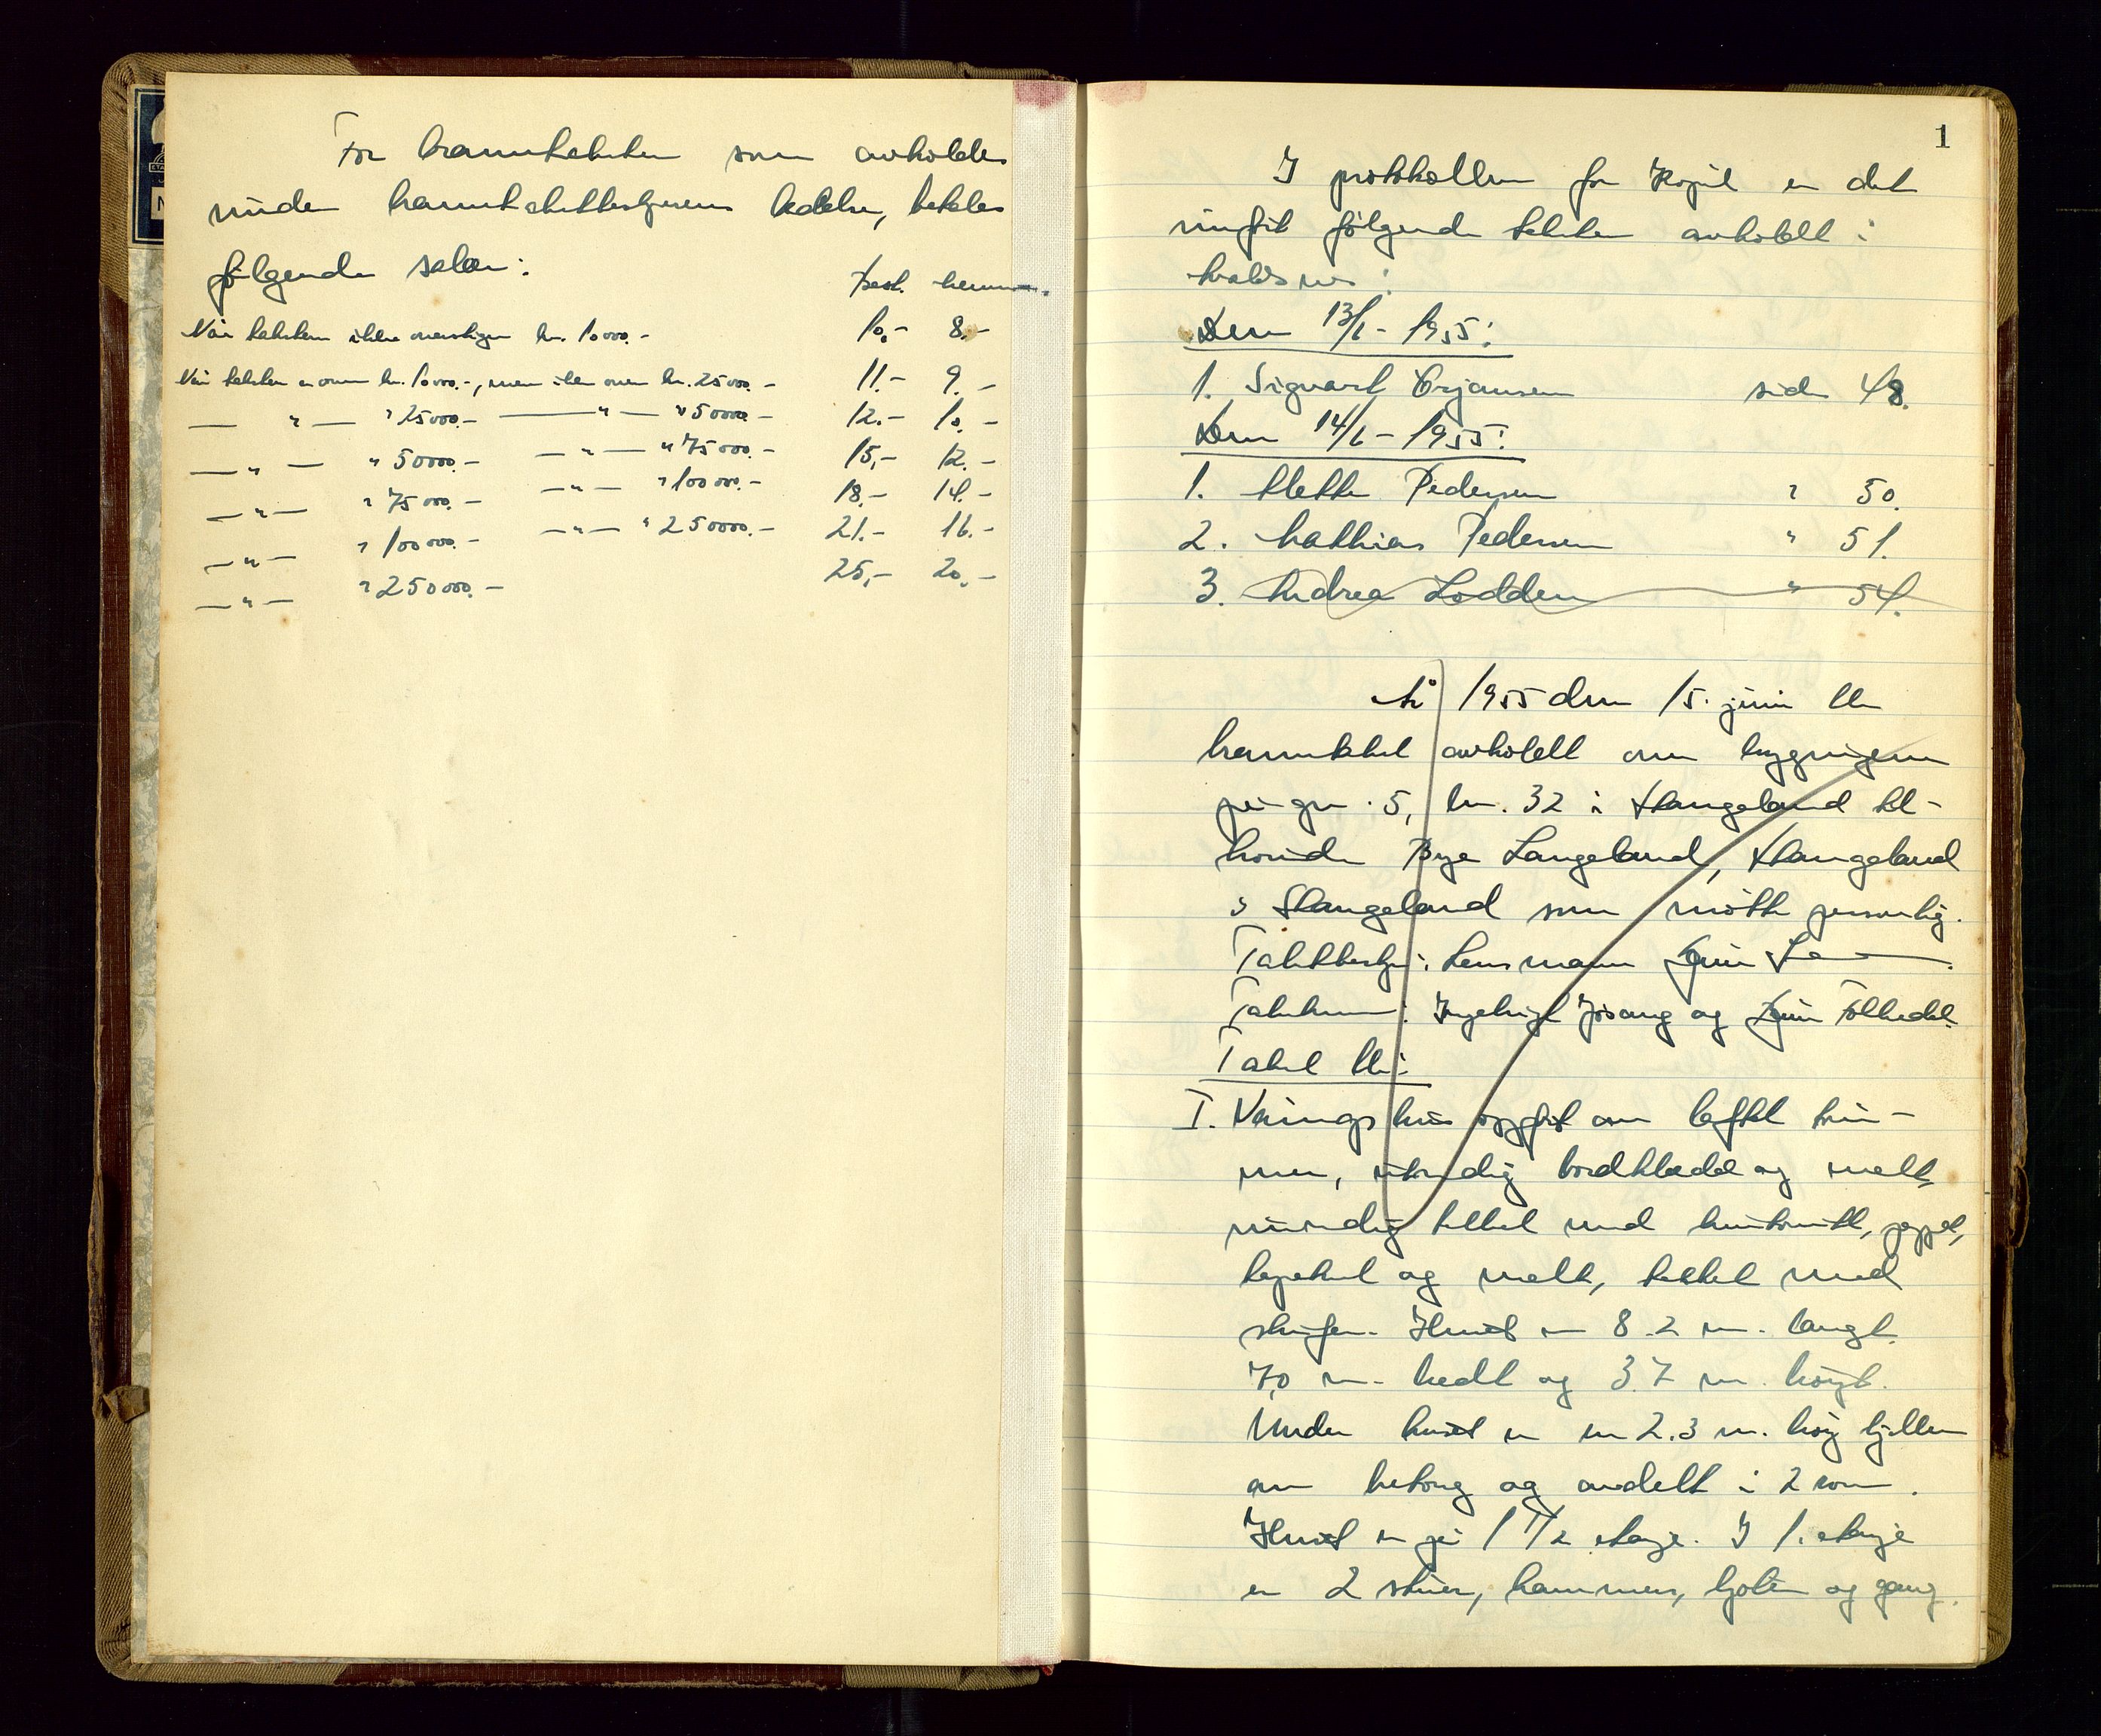 For branntakster som avholdes
under branntakstbestyrerens ledelse, betales
følgende salær:
Best. Menn.
Når taksten ikke overstiger kr. 10000.- 10,- 8.-
Når taksten er over kr. 10000.-, men ikke over kr. 25000.- 11.- 9.-
— " — " 25000.- — " — " 50000.- 12.- 10.-
— " — " 50000.- — " — " 75000.- 15,- 12.-
— " — " 75000.- — " — " 100000.- 18.- 14.-
— " — " 100000.- — " — " 250000.- 21.- 16.-
— " — " 250000.- 25,- 20,-
1
I protokollen for Kopervik er det
innført følgende takster avholdt i
Avaldsnes:
Den 13/6 - 1955:
1. Sigvart Ørjansen side 48.
Den 14/6 - 1955:
1. Mette Pedersen " 50.
2. Mathias Pedersen " 51.
3. Andrea Lodden " 54.
År 1955 den 15. juni ble
branntakst avholdt over bygningene
på gnr. 5, bnr. 32 i Stangeland til-
hørende Børge Langeland, Stangeland
Stangeland som møtte personlig.
Takstbestyrer: Lensmann
Takstmenn: Ingebrigt Jøsang og
Takst ble:
I. Våningshus oppført av laftet tøm-
mer, utvendig bordkledd og malt,
innvendig tekket med huntonitt, pappet,
tapetsert og malt, tekket med
skifer. Huset er 8.2 m. langt.
7,0 m. bredt og 3.7 m. høyt.
Under huset er en 2.3 m. høy kjeller
av betong og avdelt i 2 rom.
Huset er på 1 1/2 etasje. I 1. etasje
er 2 stuer, kammer, kjøken og gang.